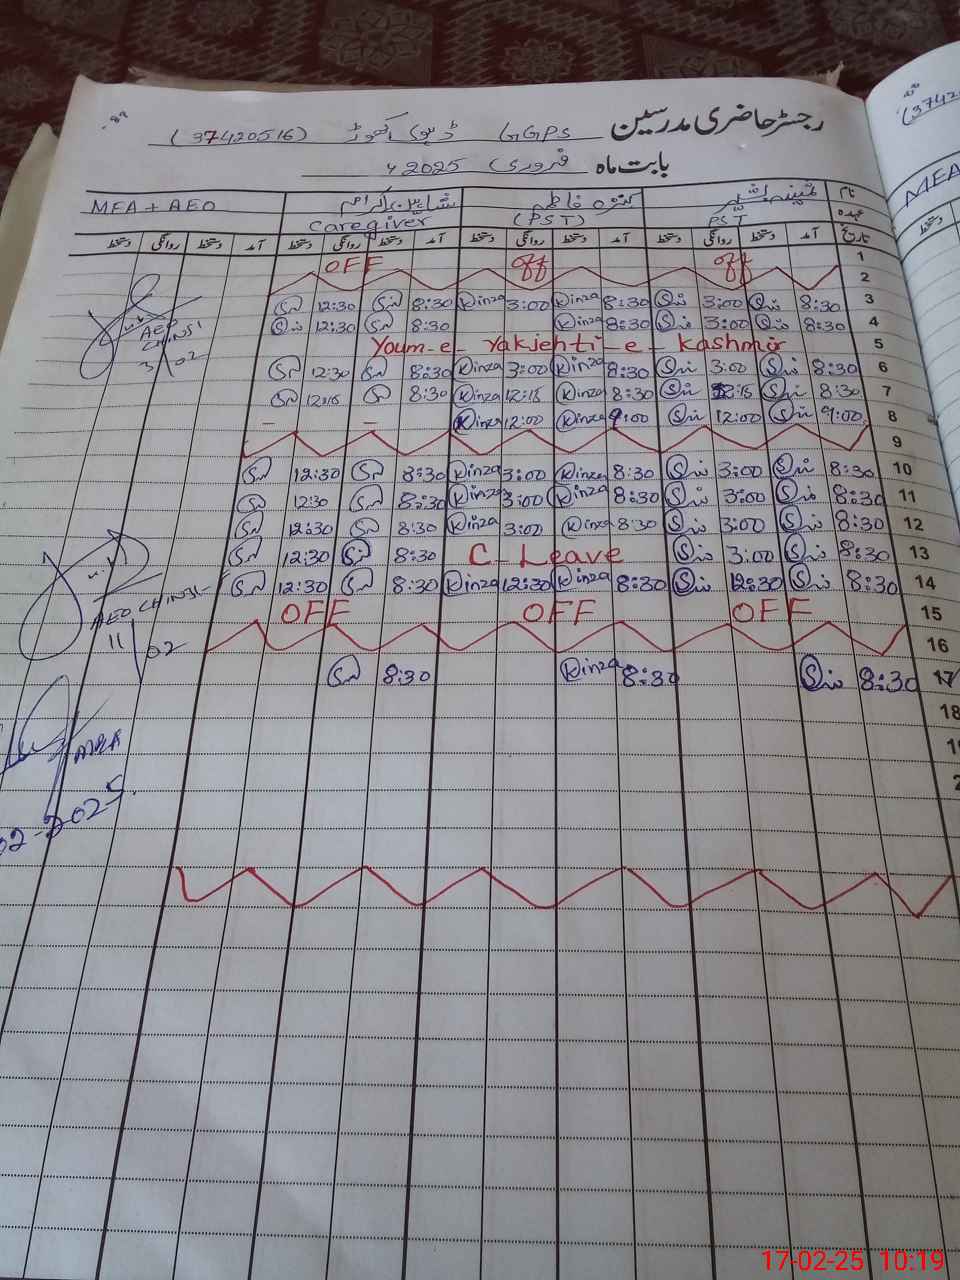 رجسٹر حاضری مدرسین GGPS ڈہوک اکھوڑ (37420516)
بابت ماہ فروری 2025ء
نام ثمینہ کنزہ فاطمہ MEA + AEO
عہدہ PST (PST) Caregiver
تاریخ آمد دستخط روانگی دستخط آمد دستخط روانگی دستخط آمد دستخط روانگی دستخط آمد دستخط روانگی دستخط
1 OFF off off
2
3 8:30 3:00 8:30 Kinza 3:00 Kinza 8:30 12:30
4 8:30 3:00 8:30 Kinza 8:30 12:30
5 Youm-e-Yakjehti-e-Kashmir
6 8:30 3:00 8:30 Kinza 3:00 Kinza 8:30 12:30
7 8:30 12:15 8:30 Kinza 12:15 Kinza 8:30 12:15
8 9:00 12:00 9:00 Kinza 12:00 Kinza – –
9
10 8:30 3:00 8:30 Kinza 3:00 Kinza 8:30 12:30
11 8:30 3:00 8:30 Kinza 3:00 Kinza 8:30 12:30
12 8:30 3:00 8:30 Kinza 3:00 Kinza 8:30 12:30
13 8:30 3:00 C-Leave 8:30 12:30
14 8:30 12:30 8:30 Kinza 12:30 Kinza 8:30 12:30
15 OFF OFF OFF
16
17 8:30 8:30 Kinza 8:30
18
AEO
CHINJI
3/02
AEO CHINJI
11/02
MEA
02-2025
MEA
17-02-25 10:19